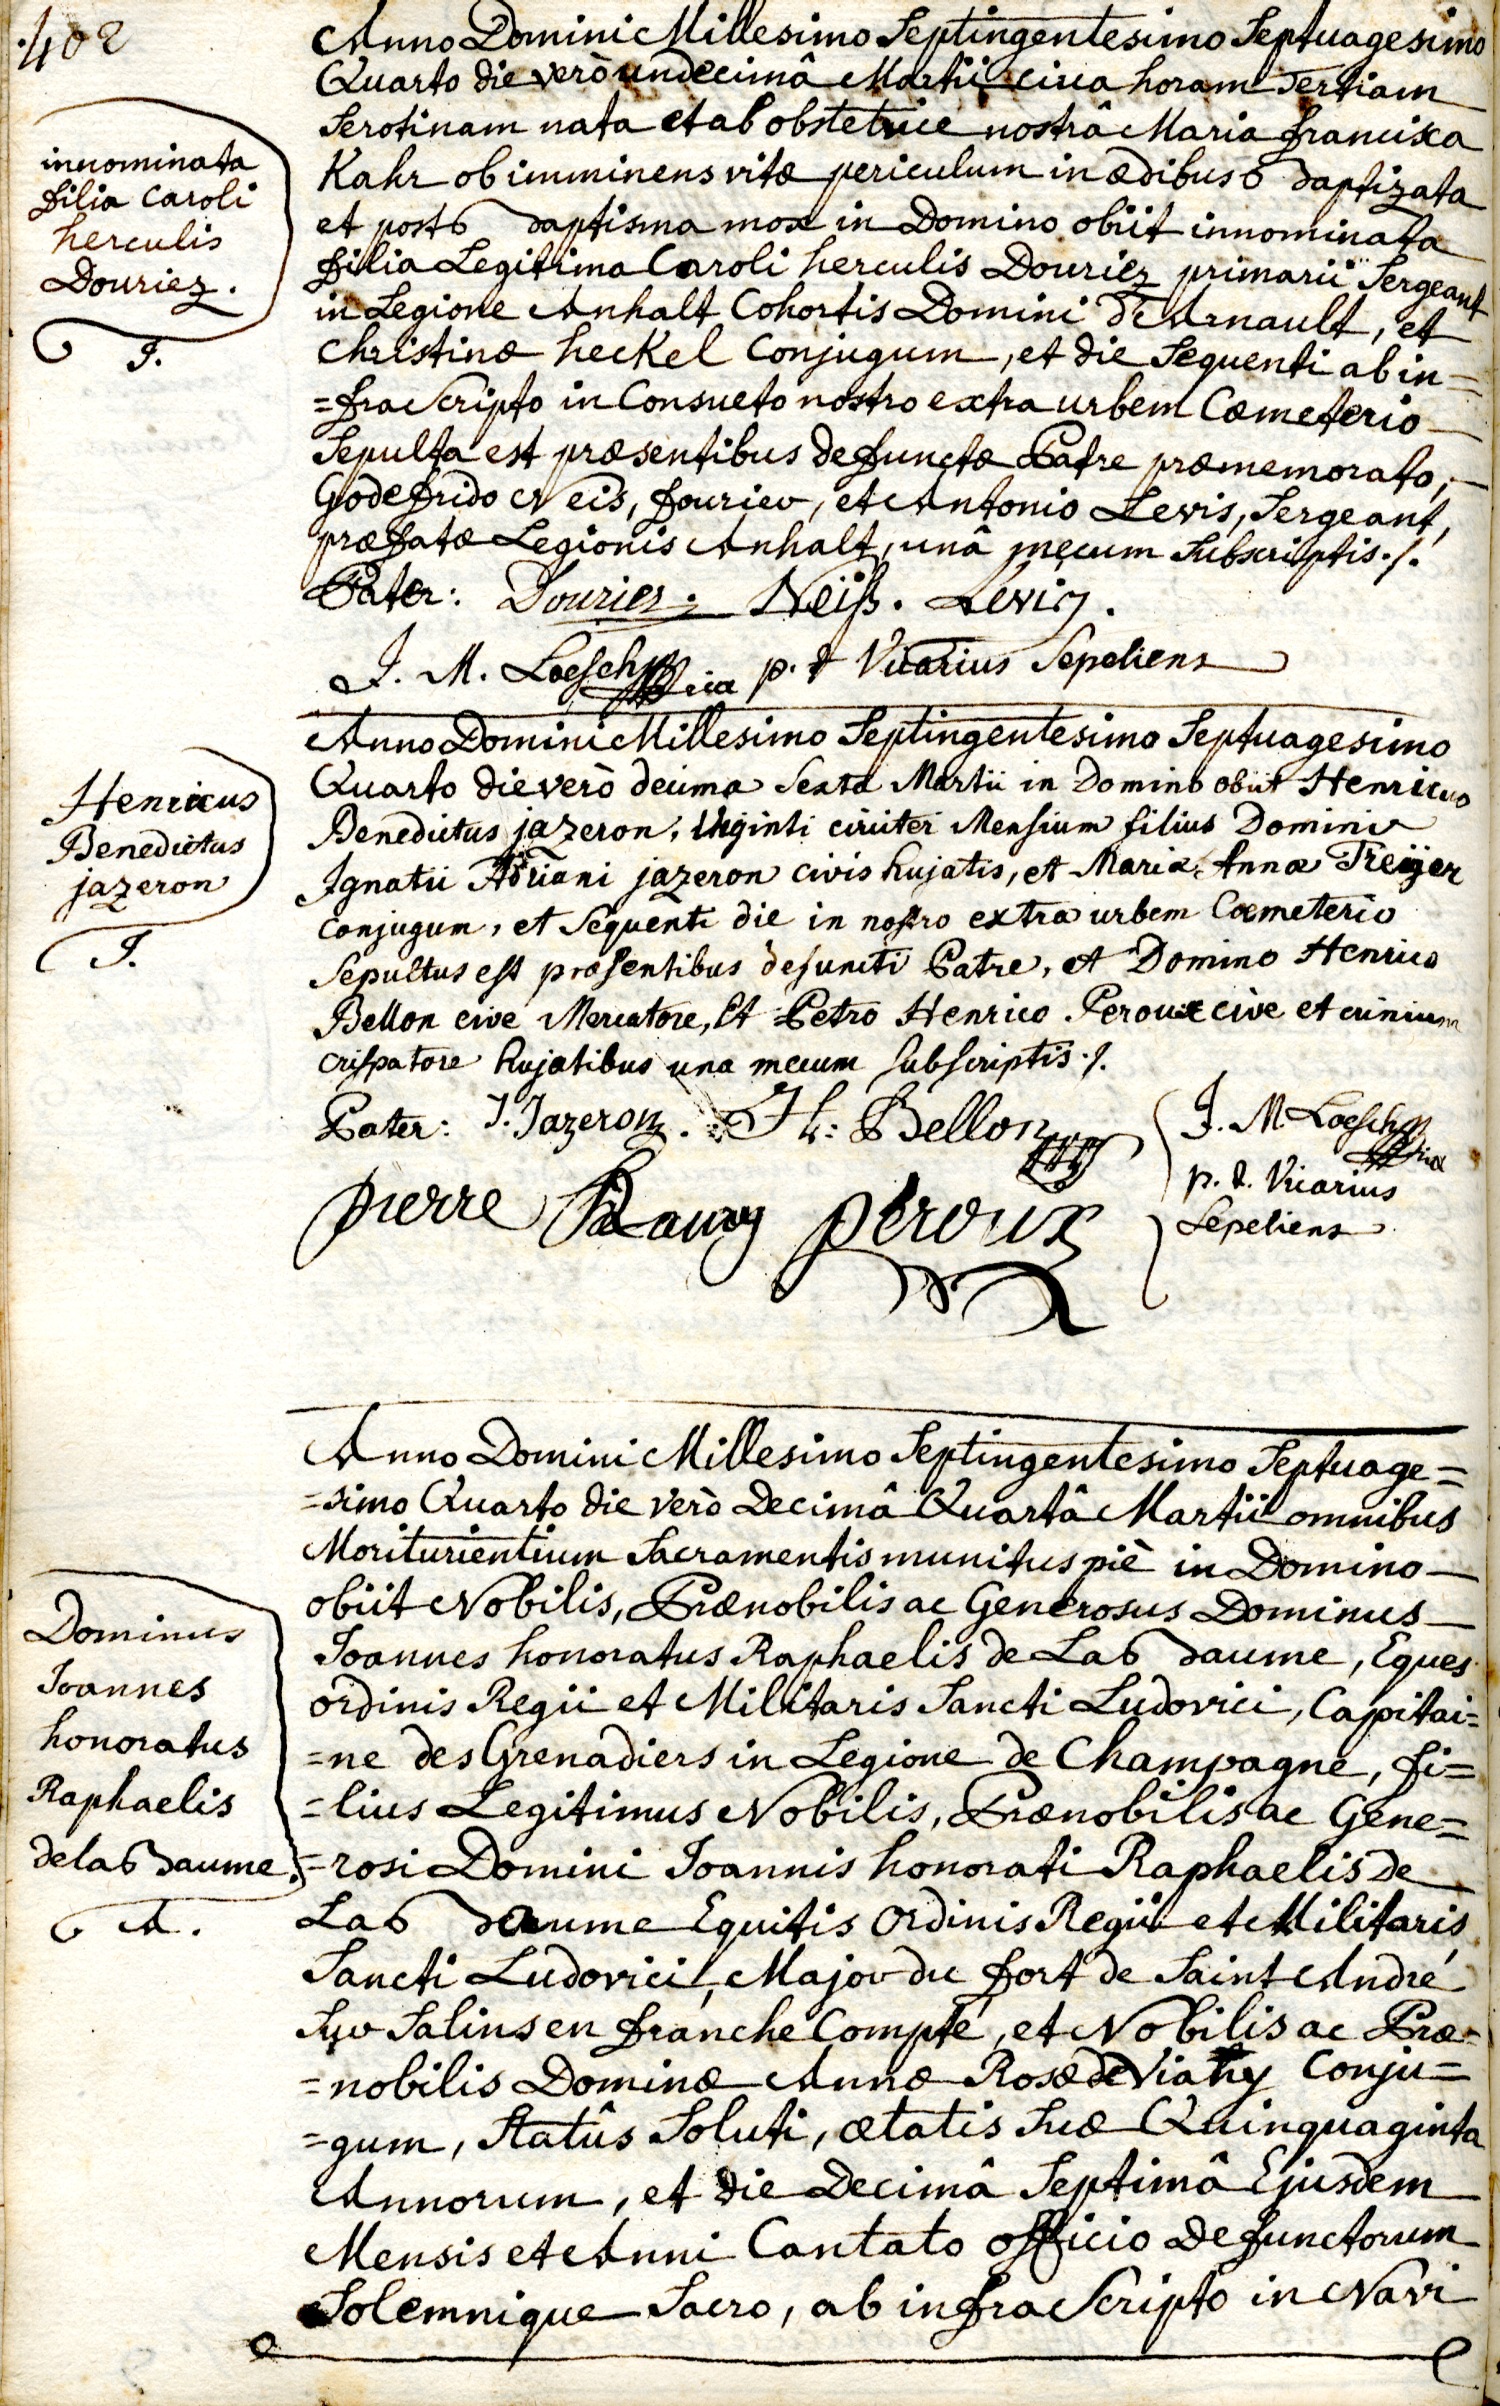 402
Anno Domini Millesimo Septingentesimo Septuagesimo
Quarto die verò undecimâ Martii circa horam Tertiam
Serotinam nata et ab obstetrice nostrâ Maria francisca
Kahr ob imminens vitæ periculum in ædibus baptizata
et post baptisma mox in Domino obiit innominata
filia Legitima Caroli herculis Douriez primarii Sergeant
in Legione Anhalt Cohortis Domini d'Arnault, et
Christinæ heckel Conjugum, et die Sequenti ab in=
=fra Scripto in Consueto nostro extra urbem Cœmeterio
Sepulta est præsentibus defunctæ Patre præmemorato,
Godefrido Neis, fourier, et Antonio Levis, Sergeant,
præfatæ Legionis Anhalt, unâ mecum Subscriptis ./.
innominata
filia Caroli
herculis
Douriez.
J.
Pater: Douriez. Neiß. Levis.
J. M. Loesch p. t Vicarius Sepeliens
Anno Domini Millesimo Septingentesimo Septuagesimo
Quarto die verò decima Sexta Martii in Domino obiit Henricus
Benedictus jazeron, Viginti circiter Mensium filius Domini
Ignatii Adriani jazeron civis hujatis, et Mariæ Annæ Treijer
conjugum, et Sequenti die in nostro extra urbem Cœmeterio
Sepultus est præsentibus defuncti Patre, et Domino Henrico
Bellon cive Mercatore, Et Petro Henrico Peroux cive et crinium
crispatore hujatibus una mecum subscriptis ./.
Henricus
Benedictus
jazeron
J.
Pater: J. Jazeron. H: Bellon
pierre peroux
J. M. Loesch
p. t. Vicarius
Sepeliens
Anno Domini Millesimo Septingentesimo Septuage=
=simo Quarto die verò Decimâ Quartâ Martii omnibus
Moriturientium Sacramentis munitus piè in Domino
obiit Nobilis, Prænobilis ac Generosus Dominus
Joannes honoratus Raphaelis de La baume, Eques
ordinis Regii et Militaris Sancti Ludovici, Capitai=
=ne des Grenadiers in Legione de Champagne, fi=
=lius Legitimus Nobilis, Prænobilis ac Gene=
=rosi Domini Joannis honorati Raphaelis de
La baume Equitis Ordinis Regii et Militaris
Sancti Ludovici, Major du fort de Saint André
Sur Salins en franche Compté, et Nobilis ac Præ=
=nobilis Dominæ Annæ Rosæ de Conju=
=gum, Statûs Soluti, ætatis Suæ Quinquaginta
Annorum, et die Decimâ Septimâ Ejusdem
Mensis et Anni Cantato officio Defunctorum
Solemnique Sacro, ab infra Scripto in Navi
Dominus
Joannes
honoratus
Raphaelis
de la baume.
A.